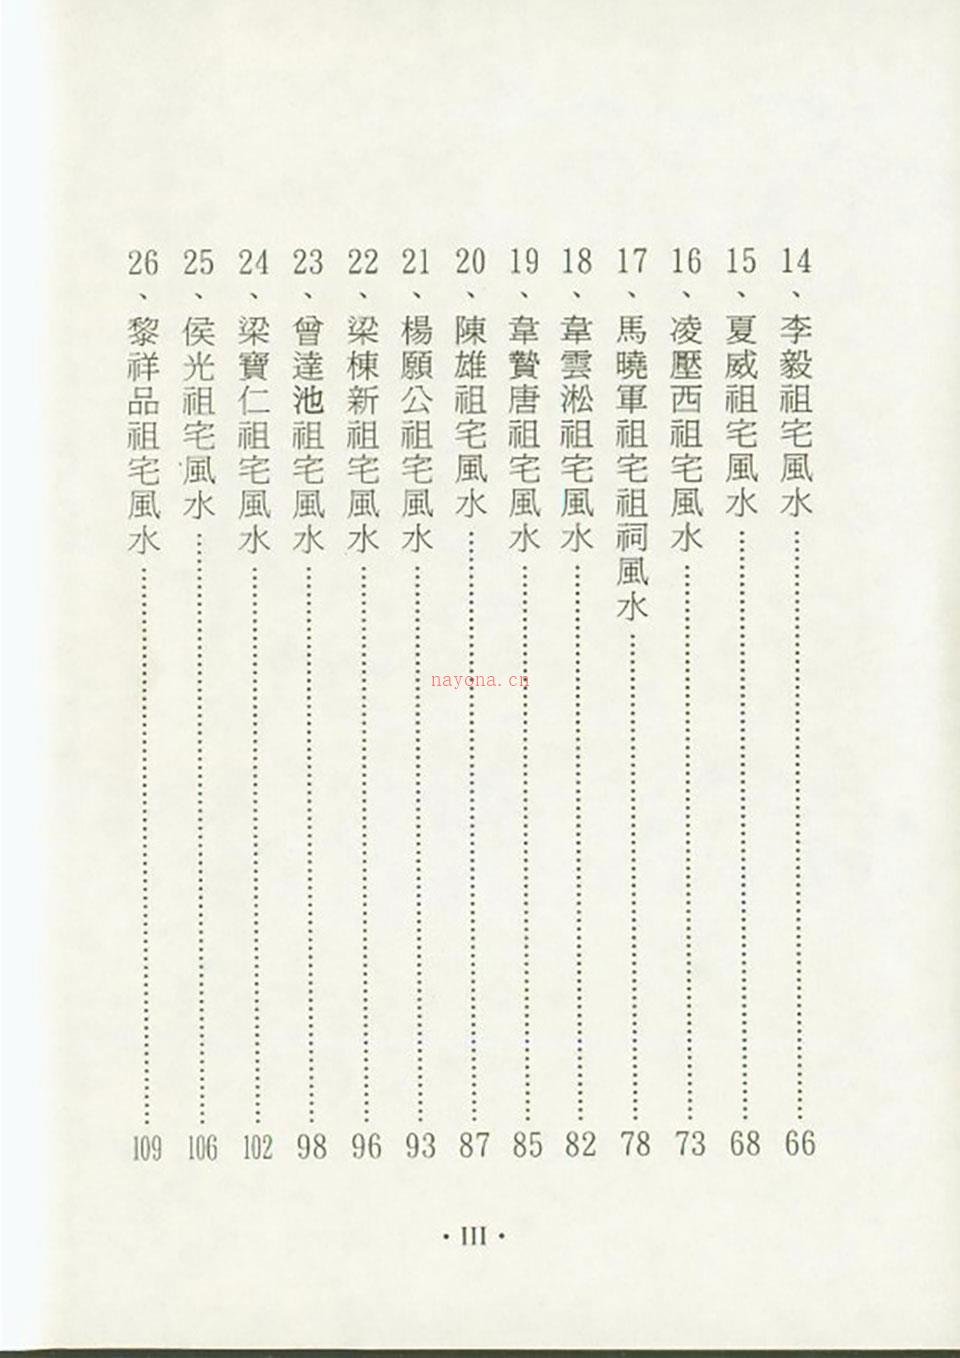 14、李毅祖宅風水……66
15、夏威祖宅風水……68
16、凌壓西祖宅風水……73
17、馬曉軍祖宅祖祠風水……78
18、韋雲淞祖宅風水……82
19、韋贄唐祖宅風水……85
20、陳雄祖宅風水……87
21、楊願公祖宅風水……93
22、梁棟新祖宅風水……96
23、曾達池祖宅風水……98
24、梁寶仁祖宅風水……102
25、侯光祖宅風水……106
26、黎祥品祖宅風水……109
nayona.cn
·III·